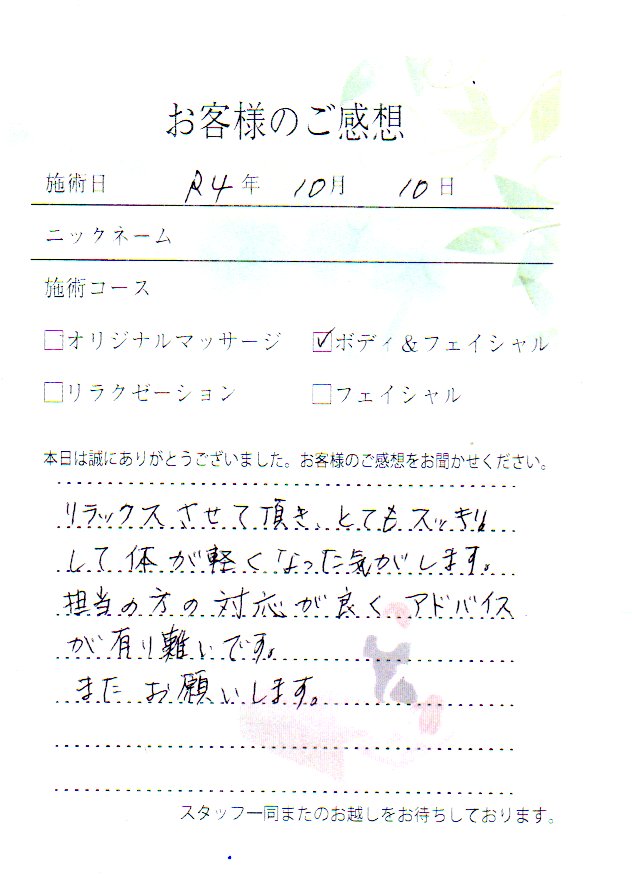 お客様のご感想
施術日 R4年 10月 10日
ニックネーム
施術コース
□オリジナルマッサージ ☑ボディ&フェイシャル
□リラクゼーション □フェイシャル
本日は誠にありがとうございました。お客様のご感想をお聞かせください。
リラックスさせて頂き、とてもスッキリ
して体が軽くなった気がします。
担当の方の対応が良く アドバイス
が有り難いです。
また お願いします。
スタッフ一同またのお越しをお待ちしております。